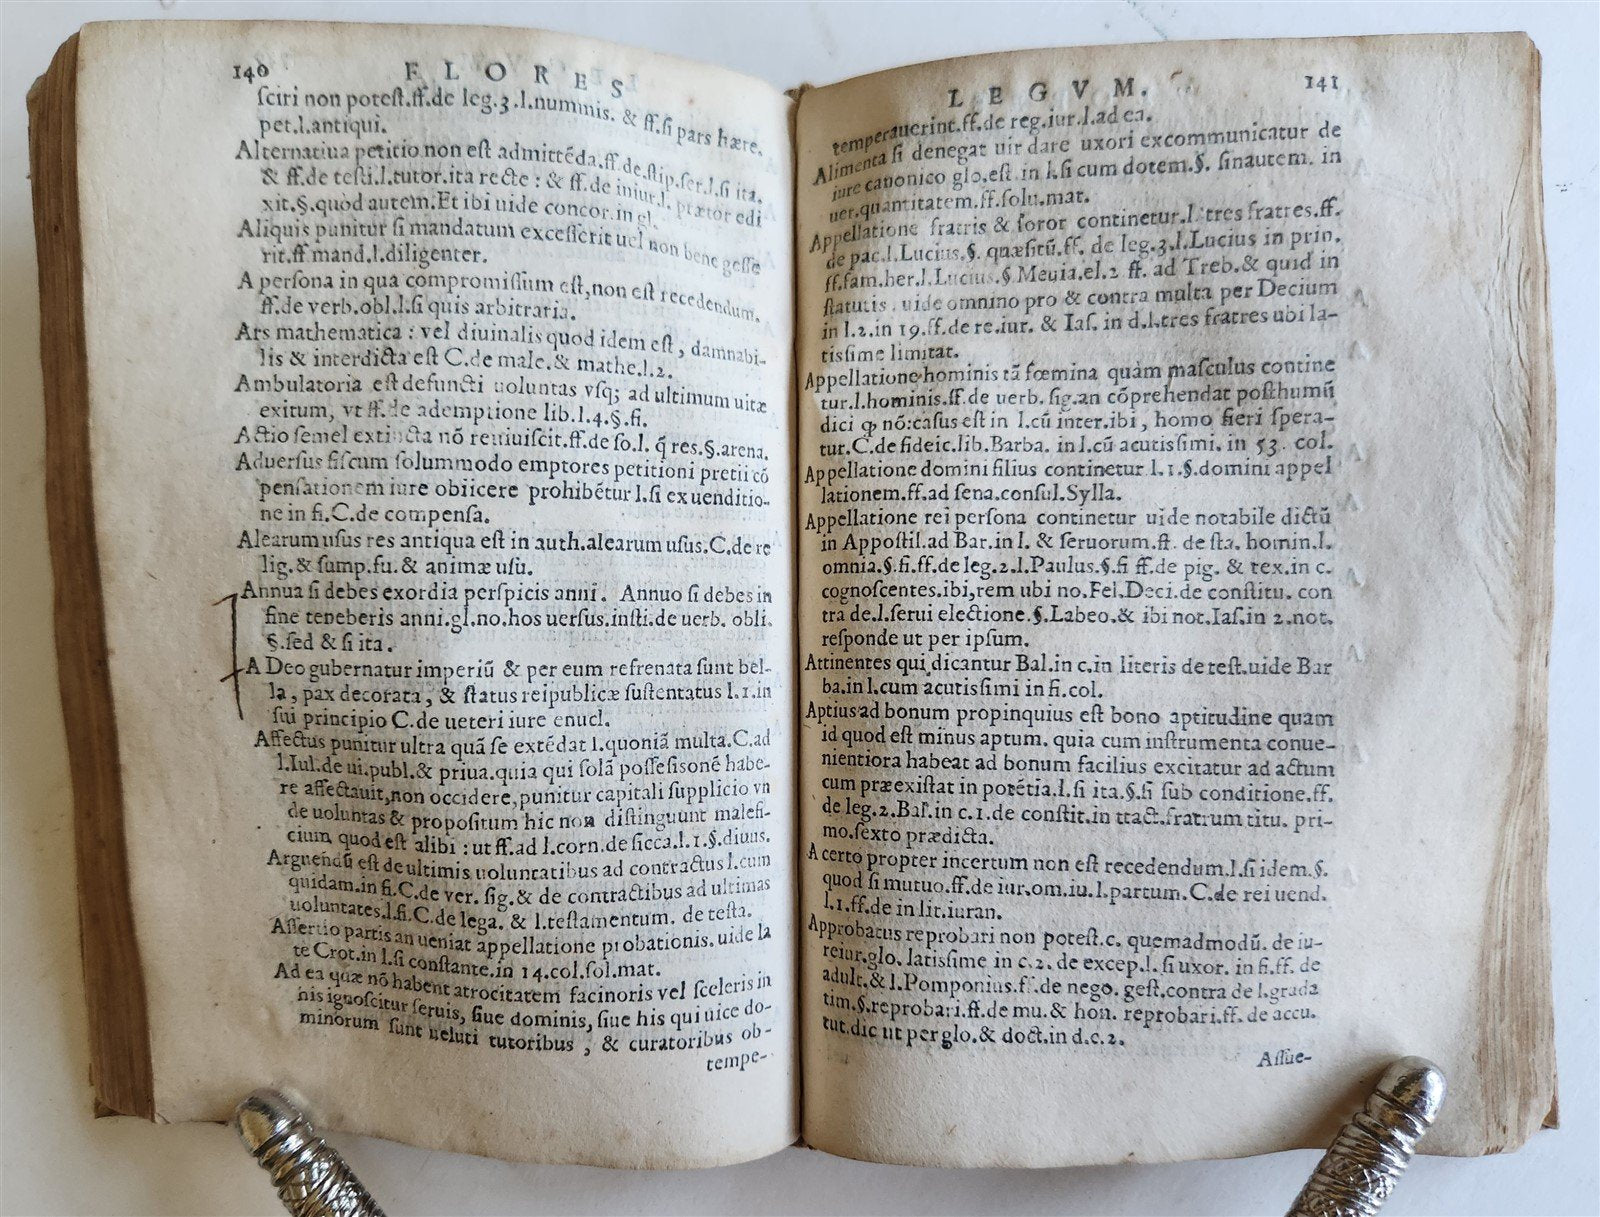 140 FLORES
sciri non potest.ff.de leg.3.l.nummis. & ff.si pars hære.
pet.l.antiqui.
Alternatiua petitio non est admittẽda.ff.de stip.ser.l.si ita.
& ff.de testi.l.tutor.ita recte : & ff.de iniur.l. prætor edi
xit.§.quod autem.Et ibi uide concor.in gl.
Aliquis punitur si mandatum excesserit uel non bene gesse
rit.ff mand.l.diligenter.
A persona in qua compromissum est,non est recedendum.
ff.de verb.obl.l.si quis arbitraria.
Ars mathematica : vel diuinalis quod idem est , damnabi-
lis & interdicta est C.de male.& mathe.l.2.
Ambulatoria est defuncti uoluntas vsq; ad ultimum uitæ
exitum, vt ff.de ademptione lib.l.4.§.fi.
Actio semel extincta nõ reuiuiscit.ff.de so.l. q̃ res.§.arena.
Aduersus fiscum solummodo emptores petitioni pretii cõ
pensationem iure obiicere prohibẽtur l.si ex uenditio-
ne in fi.C.de compensa.
Alearum usus res antiqua est in auth.alearum usus.C.de re
lig.& sump.fu.& animæ usu.
Annua si debes exordia perspicis anni. Annuo si debes in
fine teneberis anni.gl.no.hos uersus.insti.de uerb. obli.
§.sed & si ita.
A Deo gubernatur imperiũ & per eum refrenata sunt bel-
la, pax decorata, & status reipublicæ sustentatus l.1.in
sui principio C.de ueteri iure enucl.
Affectus punitur ultra quã se extẽdat l.quoniã multa.C.ad
l.Iul.de ui.publ.& priua.quia qui solã possesisonẽ habe-
re affectauit,non occidere,punitur capitali supplicio vn
de uoluntas & propositum hic non distinguunt malefi-
cium quod est alibi : ut ff.ad l.corn.de sicca.l.1.§.diuus.
Arguendũ est de ultimis uoluntatibus ad contractus l.cum
quidam.in fi.C.de ver. sig.& de contractibus ad ultimas
uoluntates.l.fi.C.de lega. & l.testamentum. de testa.
Assertio partis an ueniat appellatione probationis. uide la
te Crot.in l.si constante.in 14.col.sol.mat.
Ad ea quæ nõ habent atrocitatem facinoris vel sceleris in
nis ignoscitur seruis, siue dominis, siue his qui uice do-
minorum sunt ueluti tutoribus , & curatoribus ob-
tempe-
LEGVM. 141
temperauerint.ff.de reg.iur.l.ad ea.
Alimenta si denegat uir dare uxori excommunicatur de
iure canonico glo.est in l.si cum dotem.§. sinautem. in
uer.quantitatem.ff.solu.mat.
Appellatione fratris & soror continetur.l.tres fratres.ff.
de pac.l.Lucius.§. quæsitũ.ff. de leg.3.l.Lucius in prin.
ff.fam.her.l.Lucius.§ Meuia.el.2 ff. ad Treb.& quid in
statutis . uide omnino pro & contra multa per Decium
in l.2.in 19.ff.de re.iur. & Ias. in d.l.tres fratres ubi la-
tissime limitat.
Appellatione hominis tã fœmina quàm masculus contine
tur.l.hominis.ff.de uerb. sig.an cõprehendat posthumũ
dici ꝙ nõ:casus est in l.cũ inter.ibi, homo fieri spera-
tur.C.de fideic.lib.Barba. in l.cũ acutissimi. in 53. col.
Appellatione domini filius continetur l.1.§.domini appel
lationem.ff.ad sena.consul.Sylla.
Appellatione rei persona continetur uide notabile dictũ
in Appostil.ad Bar.in l. & seruorum.ff. de sta. homin.l.
omnia.§.fi.ff.de leg.2.l.Paulus.§.fi ff.de pig. & tex.in c.
cognoscentes.ibi,rem ubi no.Fel.Deci.de constitu. con
tra de.l.serui electione.§.Labeo.& ibi not.Ias.in 2.not.
responde ut per ipsum.
Attinentes qui dicantur Bal.in c.in literis de test.uide Bar
ba.in l.cum acutissimi in fi.col.
Aptius ad bonum propinquius est bono aptitudine quam
id quod est minus aptum. quia cum instrumenta conue-
nientiora habeat ad bonum facilius excitatur ad actum
cum præexistat in potẽtia.l.si ita.§.si sub conditione.ff.
de leg.2.Bal.in c.1.de constit.in ttact.fratrum titu. pri-
mo.sexto prædicta.
A certo propter incertum non est recedendum.l.si idem.§.
quod si mutuo.ff.de iur.om.iu.l.partum.C.de rei uend.
l.1.ff.de in lit.iuran.
Approbatus reprobari non potest.c. quemadmodũ. de iu-
reiur.glo. latissime in c.2. de excep.l.si uxor. in fi.ff. de
adult.& l.Pomponius.ff.de nego. gest.contra de l.grada
tim.§.reprobari.ff.de mu.& hon. reprobari.ff. de accu.
tut.dic ut per glo.& doct.in d.c.2.
Assue-